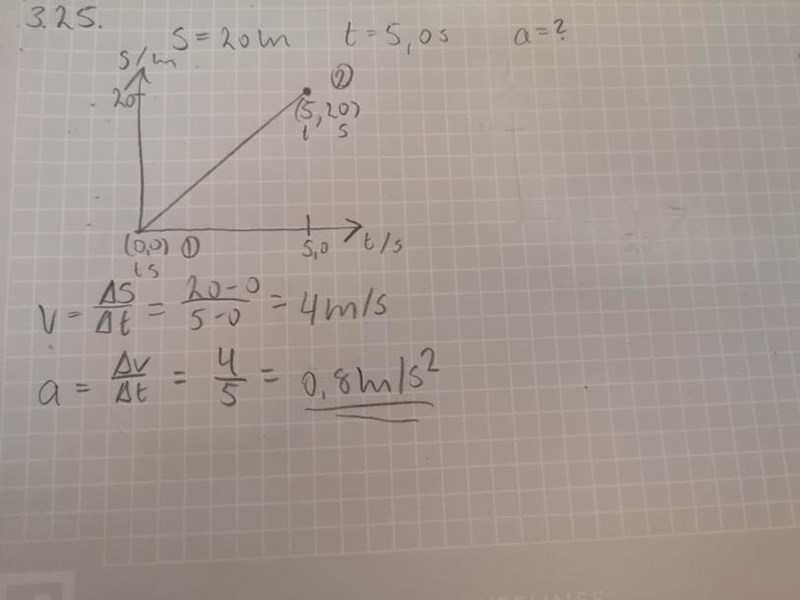 3.25.
S = 20m t = 5,0s a = ?
S/m
20
②
(5, 20)
t s
(0,0) ①
t s
5,0
t/s
V = ΔS/Δt = 20-0/5-0 = 4m/s
a = Δv/Δt = 4/5 = 0,8m/s²